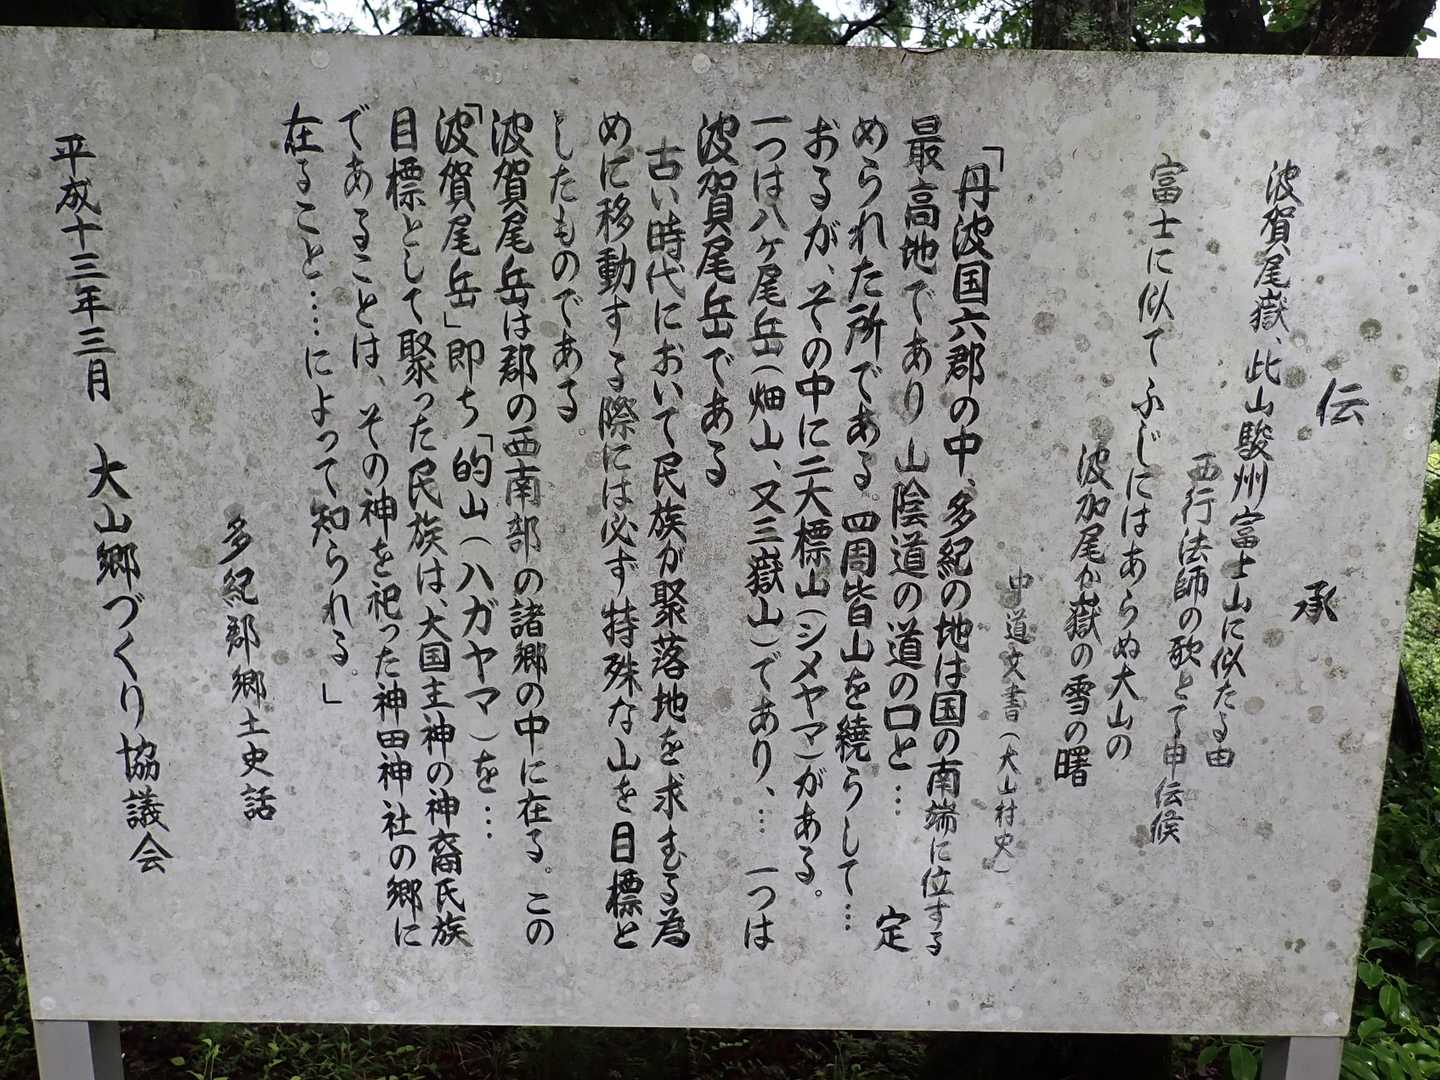 伝承
波賀尾嶽、此山駿州富士山に似たる由
西行法師の歌とて申伝候
富士に似てふじにはあらぬ大山の
波加尾か嶽の雪の曙
中道文書(大山村史)
「丹波国六郡の中、多紀の地は国の南端に位する
最高地であり山陰道の道の口と…定
められた所である。四周皆山を繞らして…
おるが、その中に二大標山(シメヤマ)がある。
一つは八ヶ尾岳(畑山、又三嶽山)であり、…一つは
波賀尾岳である。
古い時代において民族が聚落地を求むる為
めに移動する際には必ず特殊な山を目標と
したものである。
波賀尾岳は郡の西南部の諸郷の中に在る。この
「波賀尾岳」即ち「的山(ハガヤマ)を…
目標として聚った民族は、大国主神の神裔氏族
であることは、その神を祀った神田神社の郷に
在ること…によって知られる。」
多紀郡郷土史話
平成十三年三月 大山郷づくり協議会